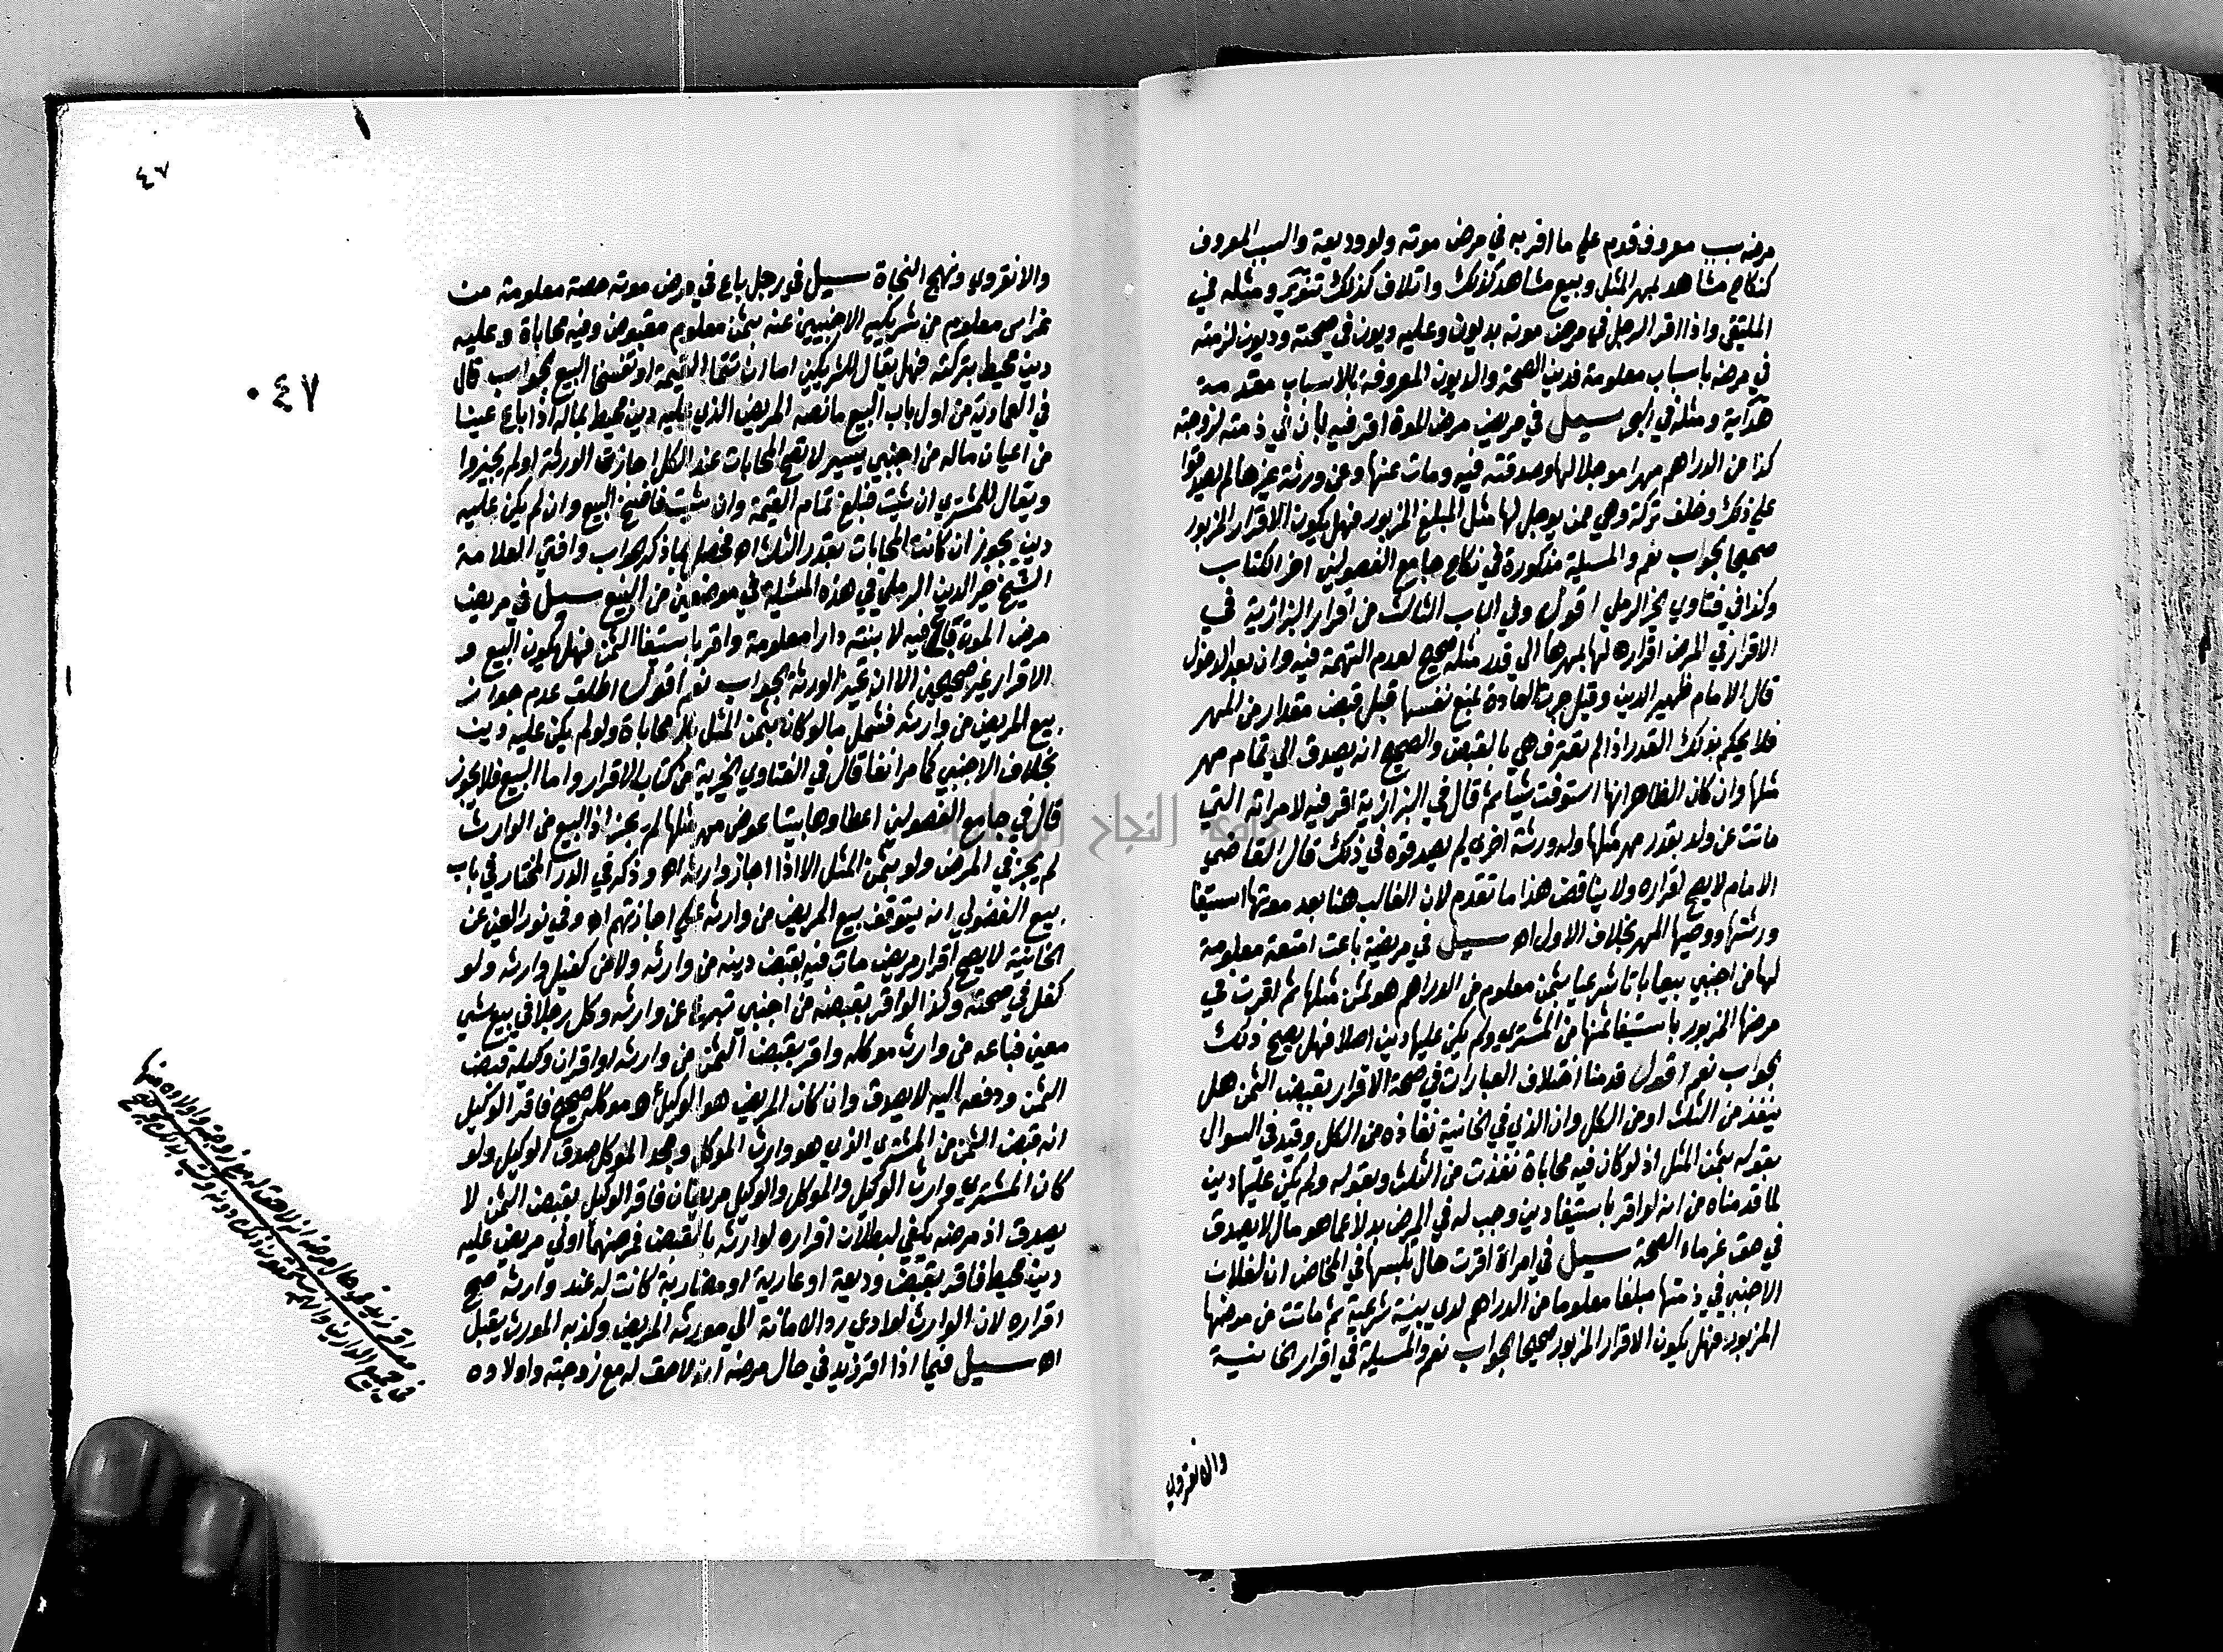 مرضه بسبب معروف قدم علي ما اقر به في مرض موته ولو وديعة والسبب المعروف
كنكاح مشاهد بمهر المثل وبيع مشاهد كذلك واتلاف كذلك تنوير ومثله في
الملتقي واذا اقر الرجل في مرض موته بديون وعليه ديون في صحته وديون لزمته
في مرضه باسباب معلومة فدين الصحة والديون المعروفة بالاسباب مقدمة
هداية ومثله في البحر سيل في مريض مرض الموت اقر فيه بان في ذمته لزوجته
كذا من الدراهم مهرا موجلا لها وصدقته فيه ومات عنها وعن ورثة غيرها لم يصدقوا
علي ذلك وخلف تركة وهي ممن يوجل لها مثل المبلغ المزبور فهل يكون الاقرار المزبور
صحيحا الجواب نعم والمسيلة مذكورة في نكاح جامع الفصولين اخر الكتاب
وكذا في فتاوي الخير الرملي اقول وفي الباب الثالث من اقرار البزازية في
الاقرار في المرض اقراره لها بمهرها الي قدر مثله صحيح لعدم التهمة فيه وان بعد الدخول
قال الامام ظهير الدين وقيل جرت العادة بمنع نفسها قبل قبض مقدار من المهر
فلا يحكم بذلك القدر اذا لم تعترف هي بالقبض والصحيح انه يصدق الي تمام مهر
مثلها وان كان الظاهر انها استوفت شيا ثم قال في البزازية اقر فيه لامراته التي
ماتت عن ولد بقدر مهر مثلها وله ورثة اخري لم يصدقوه في ذلك قال القاضي
الامام لا يصح اقراره ولا يناقض هذا ما تقدم لان الغالب هنا بعد موتها استيفا
ورثتها ووصيها المهر بخلاف الاول اه سيل في مريضة باعت امتعة معلومة
لها من اجنبي بيعا باتا شرعيا بثمن معلوم من الدراهم هو ثمن مثلها ثم اقرت في
مرضها المزبور باستيفا ثمنها من المشتري ولم يكن عليها دين اصلا فهل يصح ذلك
الجواب نعم اقول قدمنا اختلاف العبارات في صحة الاقرار بقبض الثمن هل
ينفذ من الثلث او من الكل وان الذي في الخانية نفاذه من الكل وقيد في السوال
بقوله بثمن المثل اذ لو كان فيه محاباة نفذت من الثلث وبقوله ولم يكن عليها دين
لما قدمناه من انه لو اقر باستيفا دين وجب له في المرض بدلا عما هو مال لا يصدق
في حق غرماء الصحة سيل في امراة اقرت حال تلبسها في المخاض ان لفلان
الاجنبي في ذمتها مبلغا معلوما من الدراهم لدي بينة شرعية ثم ماتت من مرضها
المزبور فهل يكون الاقرار المزبور صحيحا الجواب نعم والمسيلة في اقرار الخانية
والانقروي
٤٧
٠٤٧
والانقروي ونهج النجاة سيل في رجل باع في مرض موته حصة معلومة من
غراس معلوم من شريكيه الاجنبيين عنه بثمن معلوم مقبوض وفيه محاباة وعليه
دين محيط بتركته فهل يقال للشريكين اما ان تتما القيمة او تفسخا البيع الجواب قال
في العمادية من اول باب البيع ما نصه المريض الذي عليه دين محيط بماله اذا باع عينا
من اعيان ماله من اجنبي بيسير لا تصح المحابات عند الكل اجازت الورثة او لم يجيزوا
ويقال للمشتري ان شيت فبلغ تمام القيمة وان شيت فافسخ البيع وان لم يكن عليه
دين يجوز ان كانت المحابات بقدر الثلث اه فحصل بما ذكر جواب وافتي العلامة
الشيخ خير الدين الرملي في هذه المسيلة في موضعين من البيع سيل في مريض
مرض الموت باع فيه لابنته دارا معلومة واقر باستيفا الثمن فهل يكون البيع و
الاقرار غير صحيحين الا ان تجيز الورثة الجواب نعم اقول اطلق عدم جواز
بيع المريض من وارثه فشمل ما لو كان بثمن المثل بلا محاباة ولو لم يكن عليه دين
بخلاف الاجنبي كما مر انفا قال في الفتاوي الخيرية من كتاب الاقرار واما البيع فلا يجوز
قال في جامع الفصولين اعطاوها بيتا عوض مهر مثلها لم يجز اذ البيع من الوارث
لم يجز في المرض ولو بثمن المثل الا اذا اجاز وارثه اه وذكر في الدر المختار في باب
بيع الفضولي انه يتوقف بيع المريض من وارثه علي اجازتهم اه وفي نور العين عن
الخانية لا يصح اقرار مريض مات فيه بقبض دينه من وارثه ولا من كفيل وارثه ولو
كفل في صحته وكذا لو اقر بقبضه من اجنبي تبرع عن وارثه وكل رجلا في بيع شي
معين فباعه من وارث موكله واقر بقبض الثمن من وارثه او اقر ان وكيله قبض
الثمن ودفعه اليه لا يصدق وان كان المريض هو الوكيل و موكله صحيح فاقر الوكيل
انه قبض الثمن من المشتري الذي هو وارث الموكل وجحد الموكل صدق الوكيل ولو
كان المشتري وارث الوكيل والموكل والوكيل مريضان فاقر الوكيل بقبض الثمن لا
يصدق اذ مرضه يكفي لبطلان اقراره لوارثه بالقبض فمرضهما اولي مريض عليه
دين محيط فاقر بقبض وديعة او عارية او مضاربة كانت له عند وارثه صح
اقراره لان الوارث لو ادعي رد الامانة الي مورثه المريض وكذبه المورث يقبل
اه سيل فيما اذا اقر زيد في حال مرضه انه لا حق له مع زوجته واولاده